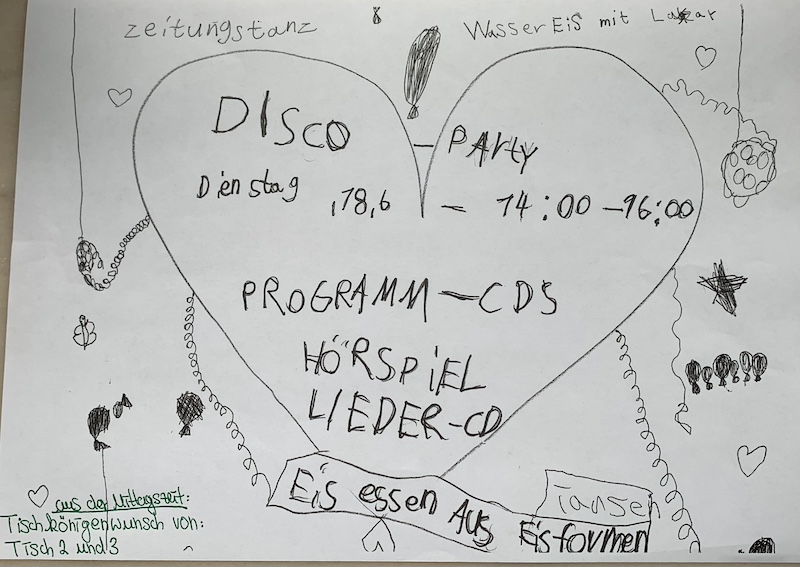 Zeitungstanz
WasserEiS mit Lakar
DISCO - PArty
Dienstag ,18,6 - 14:00-16:00
PROGRAMM-CDS
HÖRSPiEL
LIEDER-CD
Eis essen Aus Eisformen
Tansen
aus der Mittagszeit:
Tischkönigenwunsch von:
Tisch 2 und 3